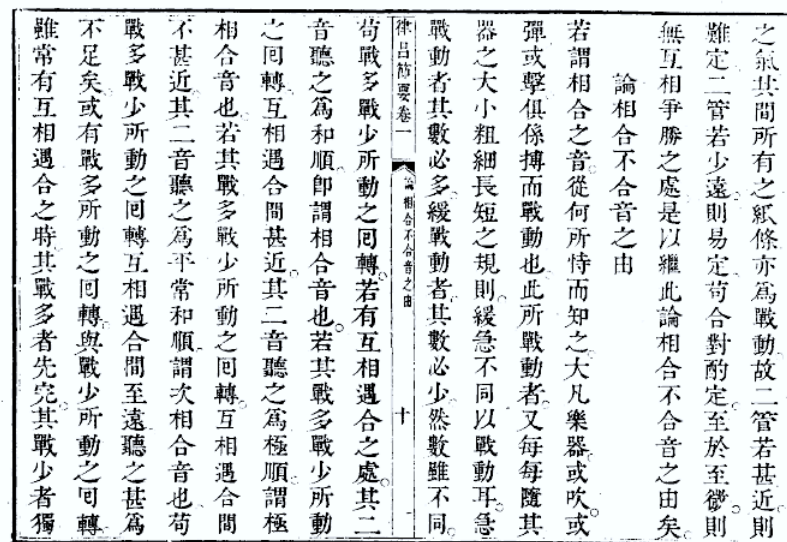 之氣其間所有之紙條亦為戰動故二管若甚近則
難定二管若少遠則易定苟合對酌定至於至微則
無互相爭勝之處是以繼此論相合不合音之由矣
論相合不合音之由
若謂相合之音從何所恃而知之大凡樂器或吹或
彈或擊俱係搏而戰動也此所戰動者又每每隨其
器之大小粗細長短之規則緩急不同以戰動耳急
戰動者其數必多緩戰動者其數必少然數雖不同
律呂節要卷一 論相合不合音之由 十
苟戰多戰少所動之囘轉若有互相遇合之處其二
音聽之為和順卽謂相合音也若其戰多戰少所動
之囘轉互相遇合間甚近其二音聽之為極順謂極
相合音也若其戰多戰少所動之囘轉互相遇合間
不甚近其二音聽之為平常和順謂次相合音也苟
戰多戰少所動之囘轉互相遇合間至遠聽之甚為
不足矣或有戰多所動之囘轉與戰少所動之囘轉
雖常有互相遇合之時其戰多者先完其戰少者獨